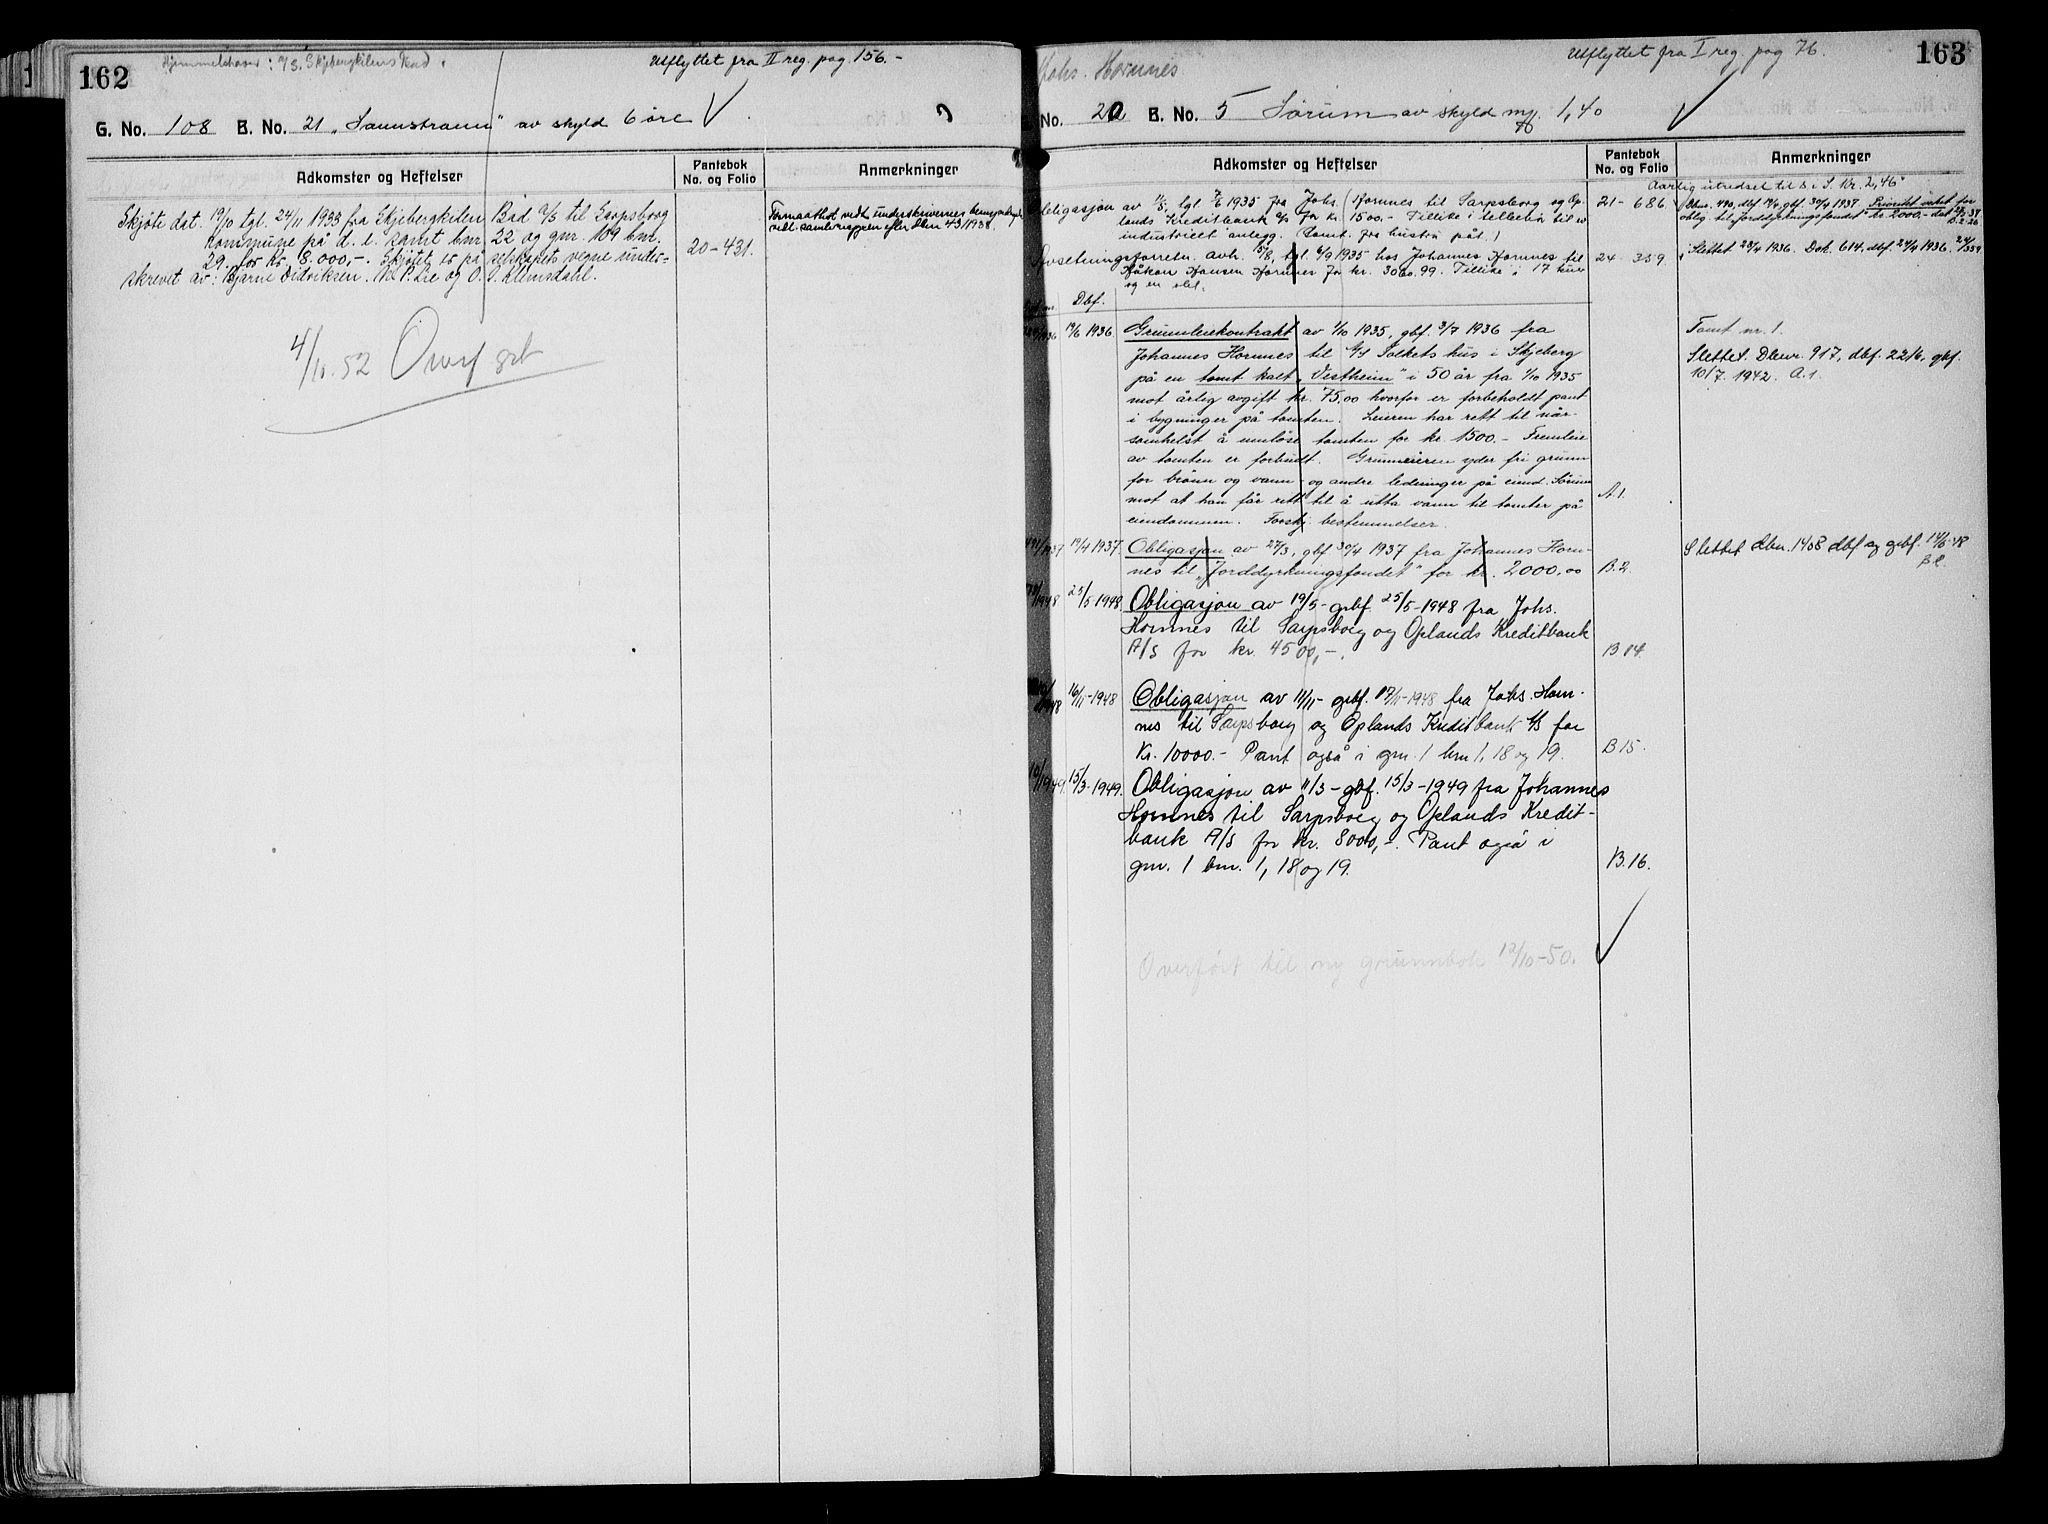 162
Hjemmelshaver: A/S. Skjebergkilens Bad.
Utflyttet fra II reg. pag. 156.-
G. No. 108 B. No. 21 „Sannstrann" av skyld 6 øre
Adkomster og Heftelser
Pantebok
No. og Folio
Anmerkninger
Skjøte dat. 19/10 tgl. 24/11 1933 fra Skjebergkilens Bad A/S til Sarpsborg
kommune på d. e. samt bnr. 22 og gnr. 109 bnr.
29, for kr. 8.000,-. Skjøtet er på selskapets vegne under-
skrevet av: Bjarne Didriksen. P. Lie og O. J. Klemsdahl.
20-431.
4/11.52 Overført
163
Johs. Hornnes
Utflyttet fra I reg. pag 76.
No. 20 B. No. 5 Sørum av skyld my. 1,40
Adkomster og Heftelser
Pantebok
No. og Folio
Anmerkninger
Aarlig utredsel til S. i S. kr. 2,46
Obligasjon av 11/5, tgl. 7/6 1935 fra Johs. Hornnes til Sarpsborg og Op-
lands Kreditbank A/S for kr. 1500.- Tillike i tilbehør til
industrielt anlegg. (Samt. fra hustru påt.)
21-686
Dbnr. 490, dbf. 19/4 gbf. 30/4 1937. Prioritet veket for
oblig. til Jorddyrkningsfondet kr. 2000,-
hos Johannes Hornnes til
Håkon Hansen Hornnes for kr. 3060.99. Tillike i 17 kuer
og en
24-359
Slettet 23/4 1936. Dok. 614, dbf. 24/4 1936.
Dbf.
19/6 1936
Grunnleiekontrakt av 1/10 1935, gbf. 3/7 1936 fra
Johannes Hornnes til A/S Folkets hus i Skjeberg
på en tomt kalt „Vestheim" i 50 år fra 1/10 1935
mot årlig avgift kr. 75,00 hvorfor er forbeholdt pant
i bygninger på tomten. Leieren har rett til når-
somhelst å innløse tomten for kr. 1500.- Fremleie
av tomten er forbudt. Grunneieren yder fri grunn
for brønn og vann- og andre ledninger på eiend. Sørum
mot at han får rett til å utta vann til tomter på
eiendommen. Forskj. bestemmelser.
A.1.
Tomt nr. 1.
Slettet. Dbnr. 917, dbf. 22/6, gbf.
10/7. 1942. A.1.
19/4 1937.
Obligasjon av 27/3, gbf 30/4 1937 fra Johannes Horn-
nes til „Jorddyrkningsfondet" for kr. 2000,00
B.2.
Slettet dbn. 1408 dbf og gbf.
25/5-1948
Obligasjon av 19/5-gbf 25/5-1948 fra Johs.
Hornnes til Sarpsborg og Oplands Kreditbank
A/S for kr. 4500,-.
B.14.
16/11-1948
Obligasjon av 11/11- gbf. 17/11-1948 fra Johs. Horn-
nes til Sarpsborg og Oplands Kreditbank A/S for
Kr. 10000.- Pant også i gnr. 1 bnr. 1, 18 og 19.
B 15.
15/3-1949.
Obligasjon av 11/3-gbf. 15/3-1949 fra Johannes
Hornnes til Sarpsborg og Oplands Kredit-
bank A/S for kr. 8000,-. Pant også i
gnr. 1 bnr. 1, 18 og 19.
B.16.
Overført til ny grunnbok 12/10-50.